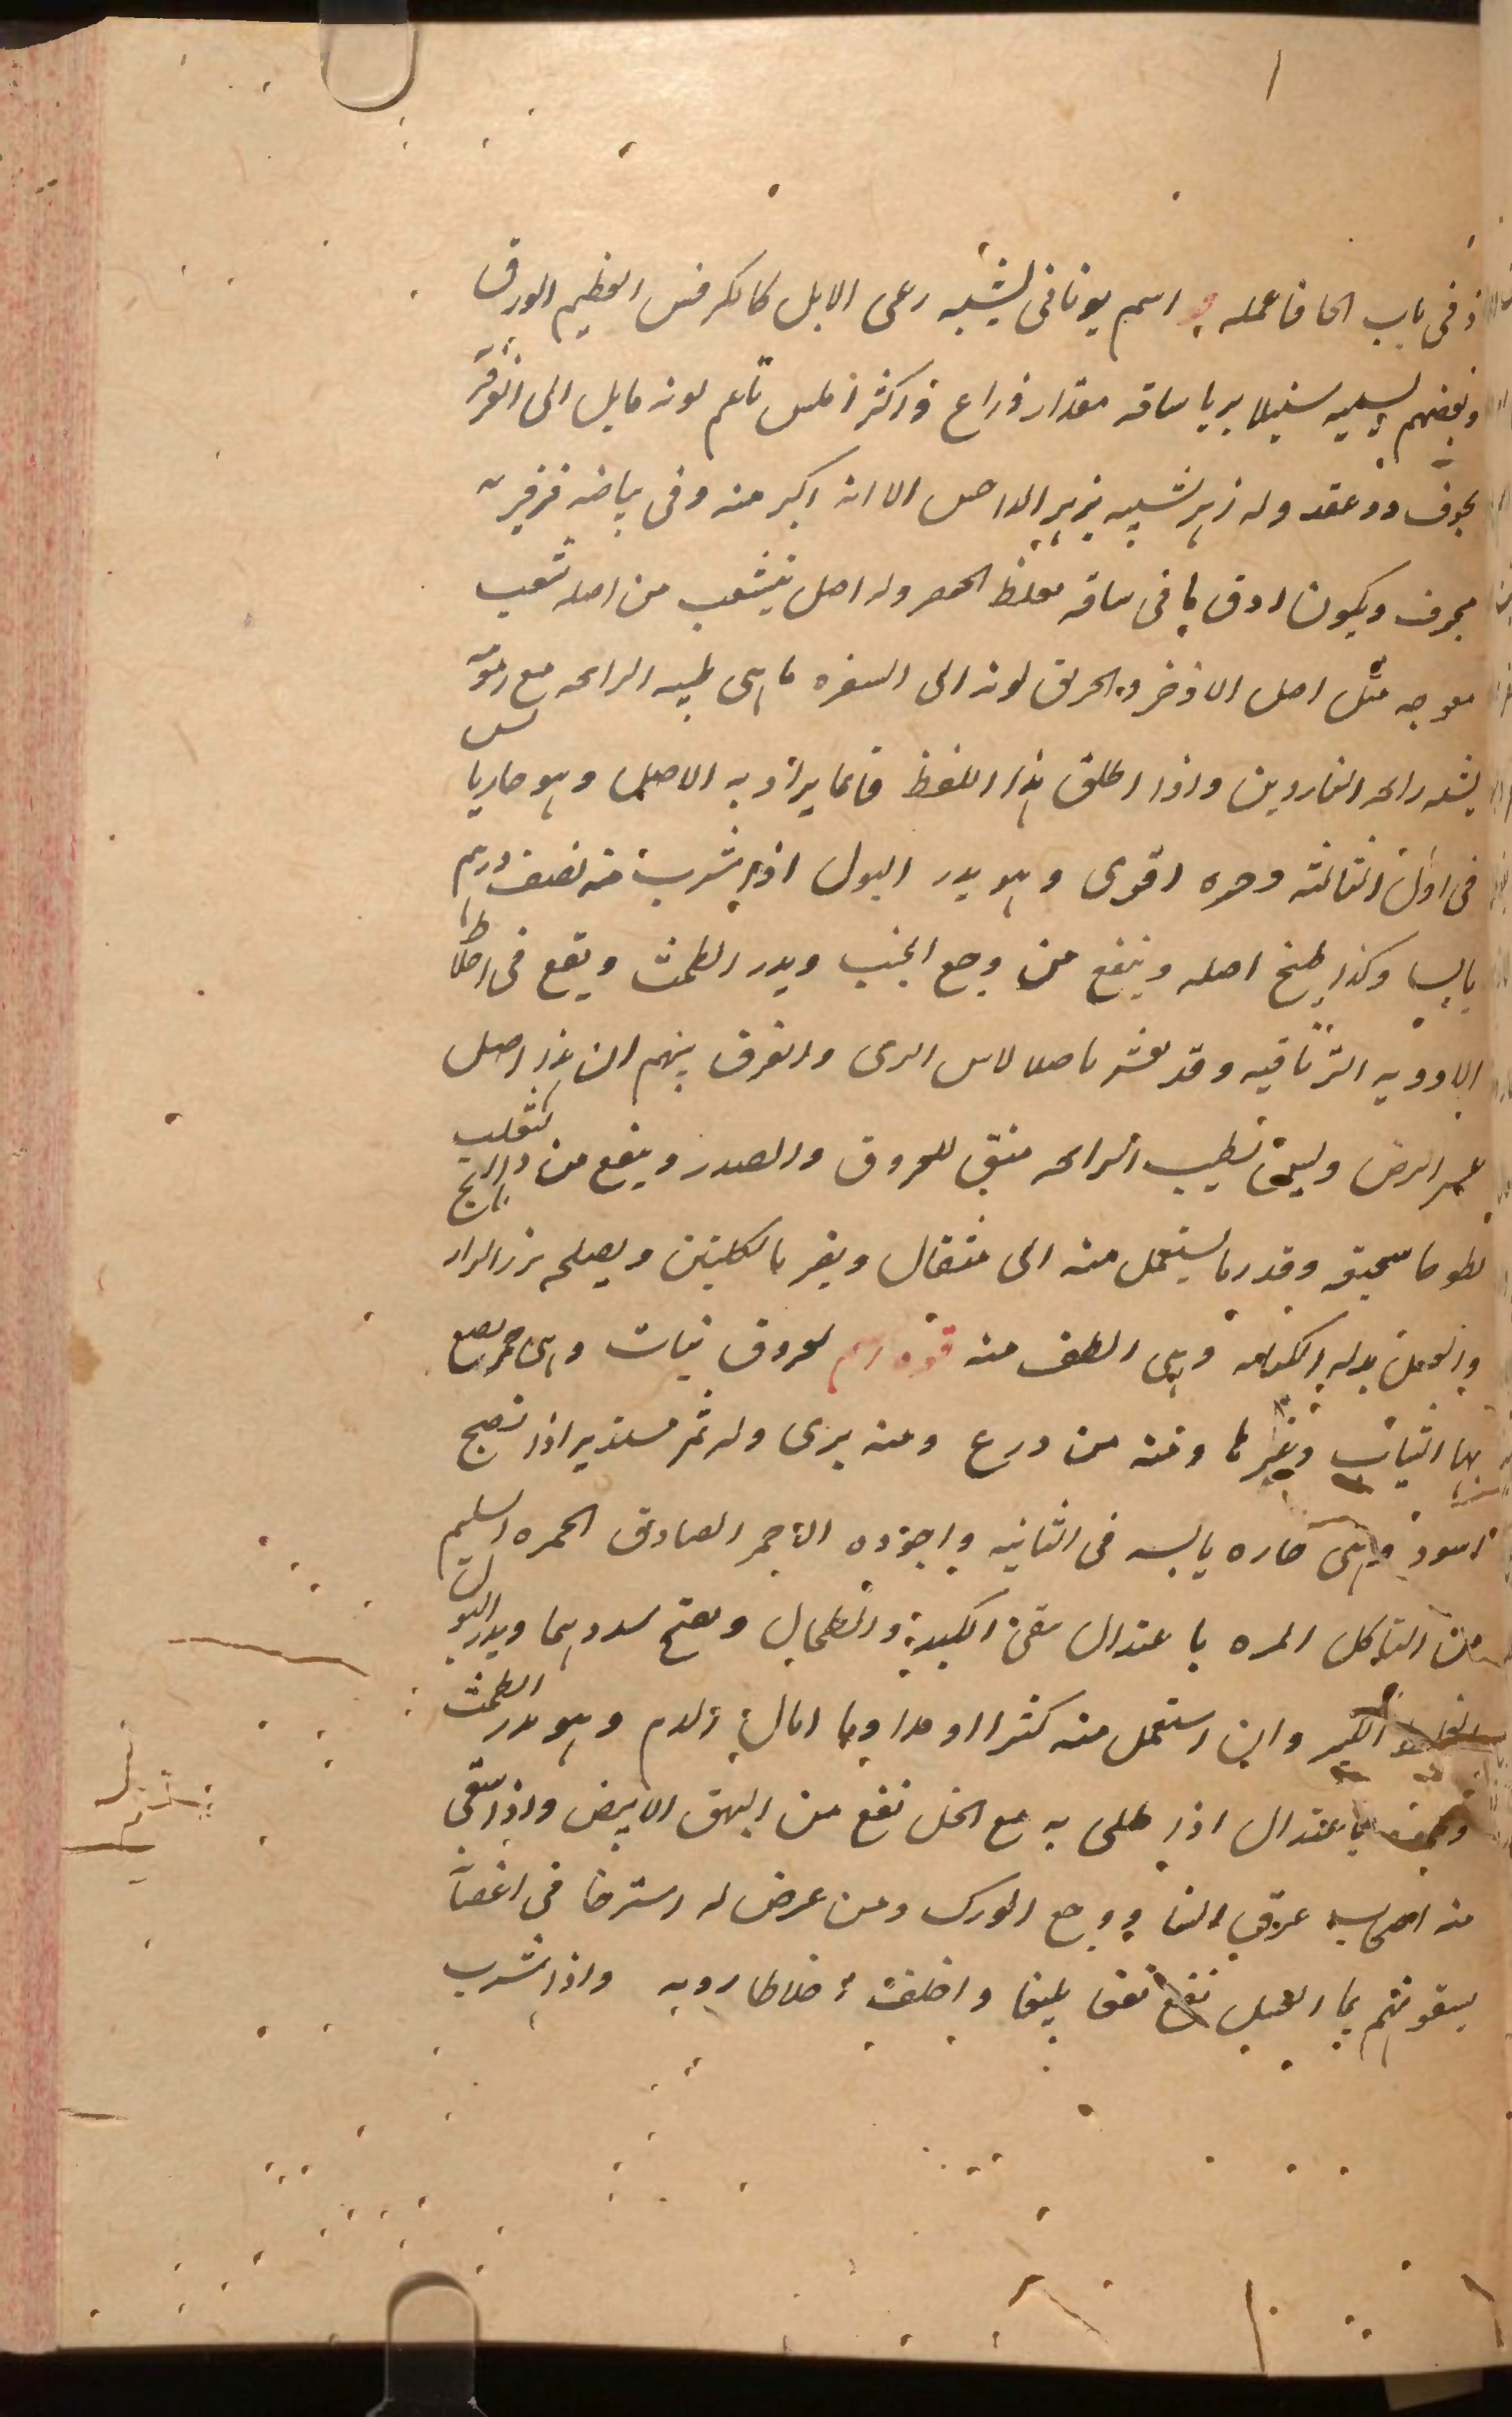 فى باب الحا فاعمله فو اسم يونانى يشبه رعى الابل كالكرفس العظيم الورق
وبعضهم يسميه سنبلا بريا ساقه مقدار ذراع واكثر املس ناعم لونه مايل الى الفرفير
مجوف ذو عقد وله زهر شبيه بزهر النرجس الا انه اكبر منه وفى بياضه فرفيريه
ويكون ادق ما فى ساقه بغلظ الخنصر وله اصل يتشعب من اصله شعب
معوجه مثل اصل الاذخر والخربق لونه الى الصفره ما هى طيبه الرايحه مع
يشبه رايحه الناردين واذا اطلق هذا اللفظ فانما يراد به الاصل وهو حار يابس
فى اول الثالثه وهو يدر البول اذا شرب منه نصف درهم
يابسا وكذا طبيخ اصله وينفع من وجع الجنب ويدر الطمث ويقع فى اخلاط
الادويه الترياقيه وقد يغش باصل الاس البرى والفرق بينهم ان هذا اصل
عسر الرض وليس بطيب الرايحه منق للعروق والصدر وينفع من داء الثعلب
لطوخا سحيقه وقدر ما يستعمل منه الى مثقال ويضر بالكليتين ويصلحه بزر الرازيانج
بدله وهى الطف منه فوه اسم لعروق نبات وهى حمر يصبغ
بها الثياب وغيرها ومنه من درع ومنه برى وله ثمر مستدير اذا نضج
اسود وهى حاره يابسه فى الثانيه واجوده الاحمر الصادق الحمره السليم
من التاكل المره باعتدال ينقى الكبد والطحال ويفتح سددهما ويدر البول
الغليظ الكثير وان استعمل منه كثيرا او مداوما ابال الدم وهو يدر الطمث
باعتدال اذا طلى به مع الخل نفع من البهق الابيض واذا سقى
منه اصحاب عرق النسا ووجع الورك ومن عرض له استرخا فى اعضا
يسقونهم بما العسل نفع نفعا بليغا واخلف اخلاطا رديه واذا شرب